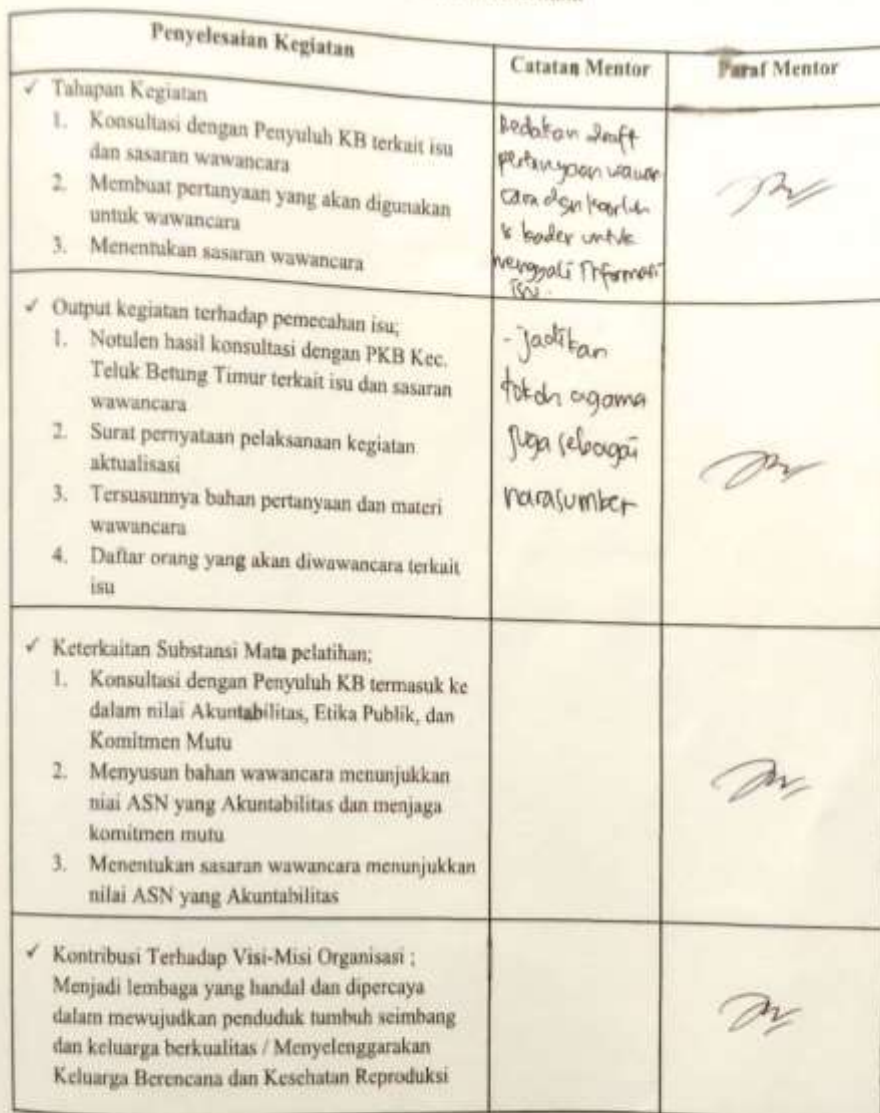 Penyelesaian Kegiatan
Catatan Mentor
Paraf Mentor
✓ Tahapan Kegiatan
1. Konsultasi dengan Penyuluh KB terkait isu
dan sasaran wawancara
2. Membuat pertanyaan yang akan digunakan
untuk wawancara
3. Menentukan sasaran wawancara
draft
pertanyaan wawan
cara
kader untuk
menggali informasi
isu.
✓ Output kegiatan terhadap pemecahan isu;
1. Notulen hasil konsultasi dengan PKB Kec.
Teluk Betung Timur terkait isu dan sasaran
wawancara
2. Surat pernyataan pelaksanaan kegiatan
aktualisasi
3. Tersusunnya bahan pertanyaan dan materi
wawancara
4. Daftar orang yang akan diwawancara terkait
isu
- Jadikan
tokoh agama
juga sebagai
narasumber
✓ Keterkaitan Substansi Mata pelatihan;
1. Konsultasi dengan Penyuluh KB termasuk ke
dalam nilai Akuntabilitas, Etika Publik, dan
Komitmen Mutu
2. Menyusun bahan wawancara menunjukkan
niai ASN yang Akuntabilitas dan menjaga
komitmen mutu
3. Menentukan sasaran wawancara menunjukkan
nilai ASN yang Akuntabilitas
✓ Kontribusi Terhadap Visi-Misi Organisasi ;
Menjadi lembaga yang handal dan dipercaya
dalam mewujudkan penduduk tumbuh seimbang
dan keluarga berkualitas / Menyelenggarakan
Keluarga Berencana dan Kesehatan Reproduksi